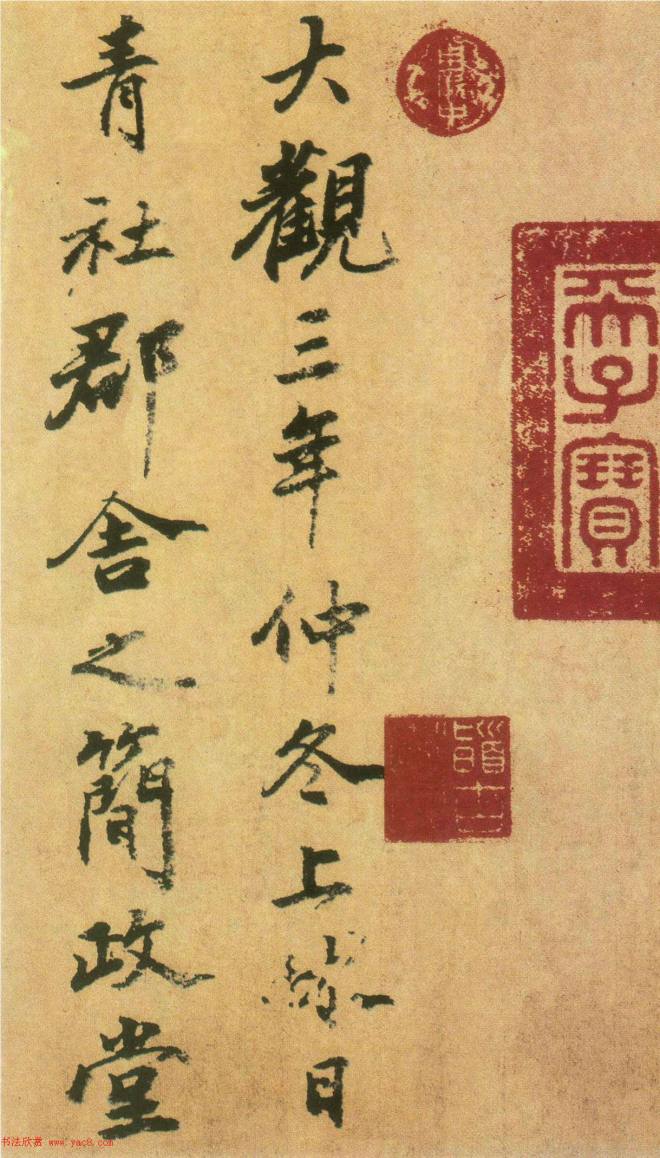 大觀三年仲冬上休日
青社郡舍之簡政堂
子寶
书法欣赏 www.yac8.com